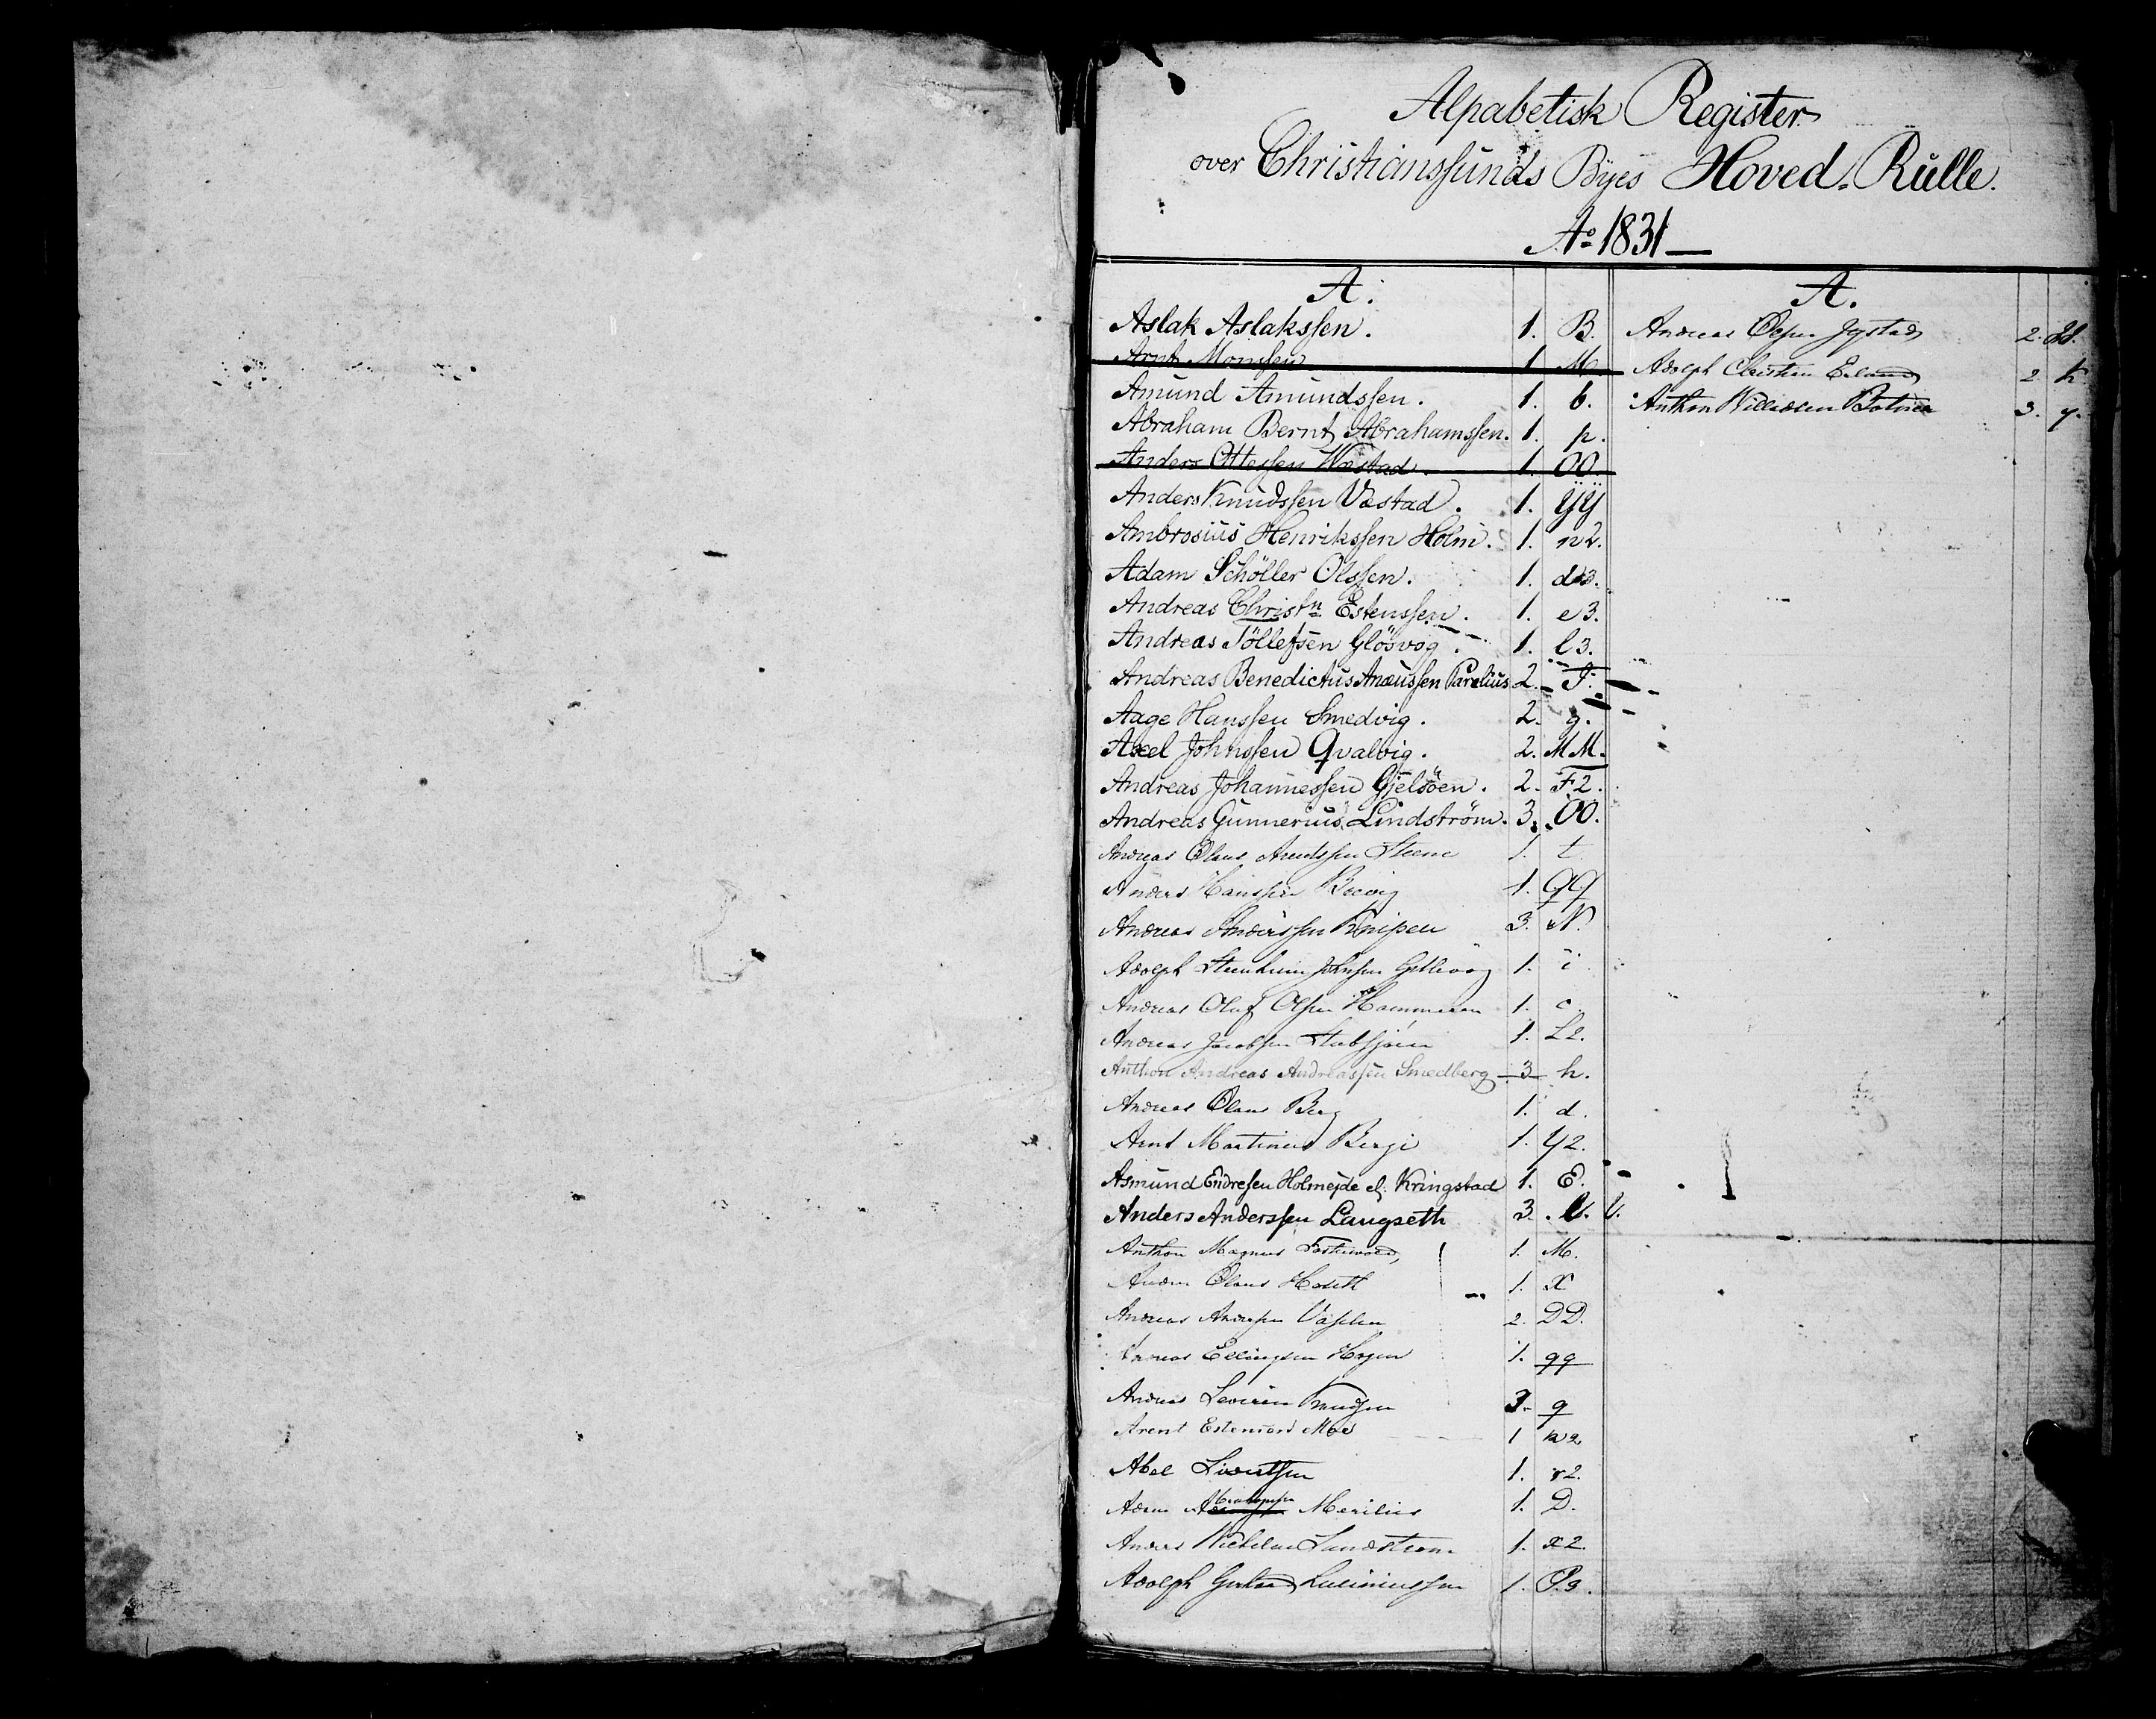 Alpabetisk Register
over Christianssunds Byes Hoved-Rulle.
Ao 1831
A.
Aslak Aslakssen. 1. B.
Arnt Monssen 1 M.
Amund Amundssen. 1. b.
Abraham Bernt Abrahamssen. 1. p.
Anders Ottessen Wæstad. 1. OO.
Anders Knudssen Væstad. 1. YY
Ambrosius Henrikssen Holm. 1. n2.
Adam Schöller Olssen. 1. d3.
Andreas Christn Estenssen. 1. e3.
Andreas Töllefsen Glösvog. 1. l3.
Andreas Benedictus Anæussen Parelius 2.
Aage Hanssen Smedvig. 2. g.
Axel Johnssen Qvalvig. 2. MM.
Andreas Johannessen Gjelsöen. 2. F2.
Andreas Gunnerius Lindström. 3. OO.
Andreas Olaus Arentssen Steene 1. t.
Anders Hanssen Brevig 1. QQ
Andreas Anderssen Knipen 3. N.
Adolph Johnsen 1. i
Andreas Oluf Olsen Hammeren 1. c.
Andreas Jacobsen 1. L2.
Anthon Andreas Andreassen Smedberg 3 h.
Andreas Olaus Berg 1. d.
Arnt Martinus Berge 1. Y2.
Asmund Endresen Holmejde el. Kringstad 1. E.
Anders Anderssen Langseth 3. U. U.
Anthon Magnus 1. M.
Olaus 1. X
Andreas Andersen 2. DD.
Ellingsen Hagen 1. qq
Andreas Severin Knudsen 3. q
Arent Estensen Moe 1 n2
Abel Sivertsen 1. r2.
Adam 1. D.
Anders Vilhelm Landstrom 1. x2.
Adolph Gustav 1.
A.
Andreas Olsen 2.
Adolph Christian 2 k
Anthon Willadsen 3. y.